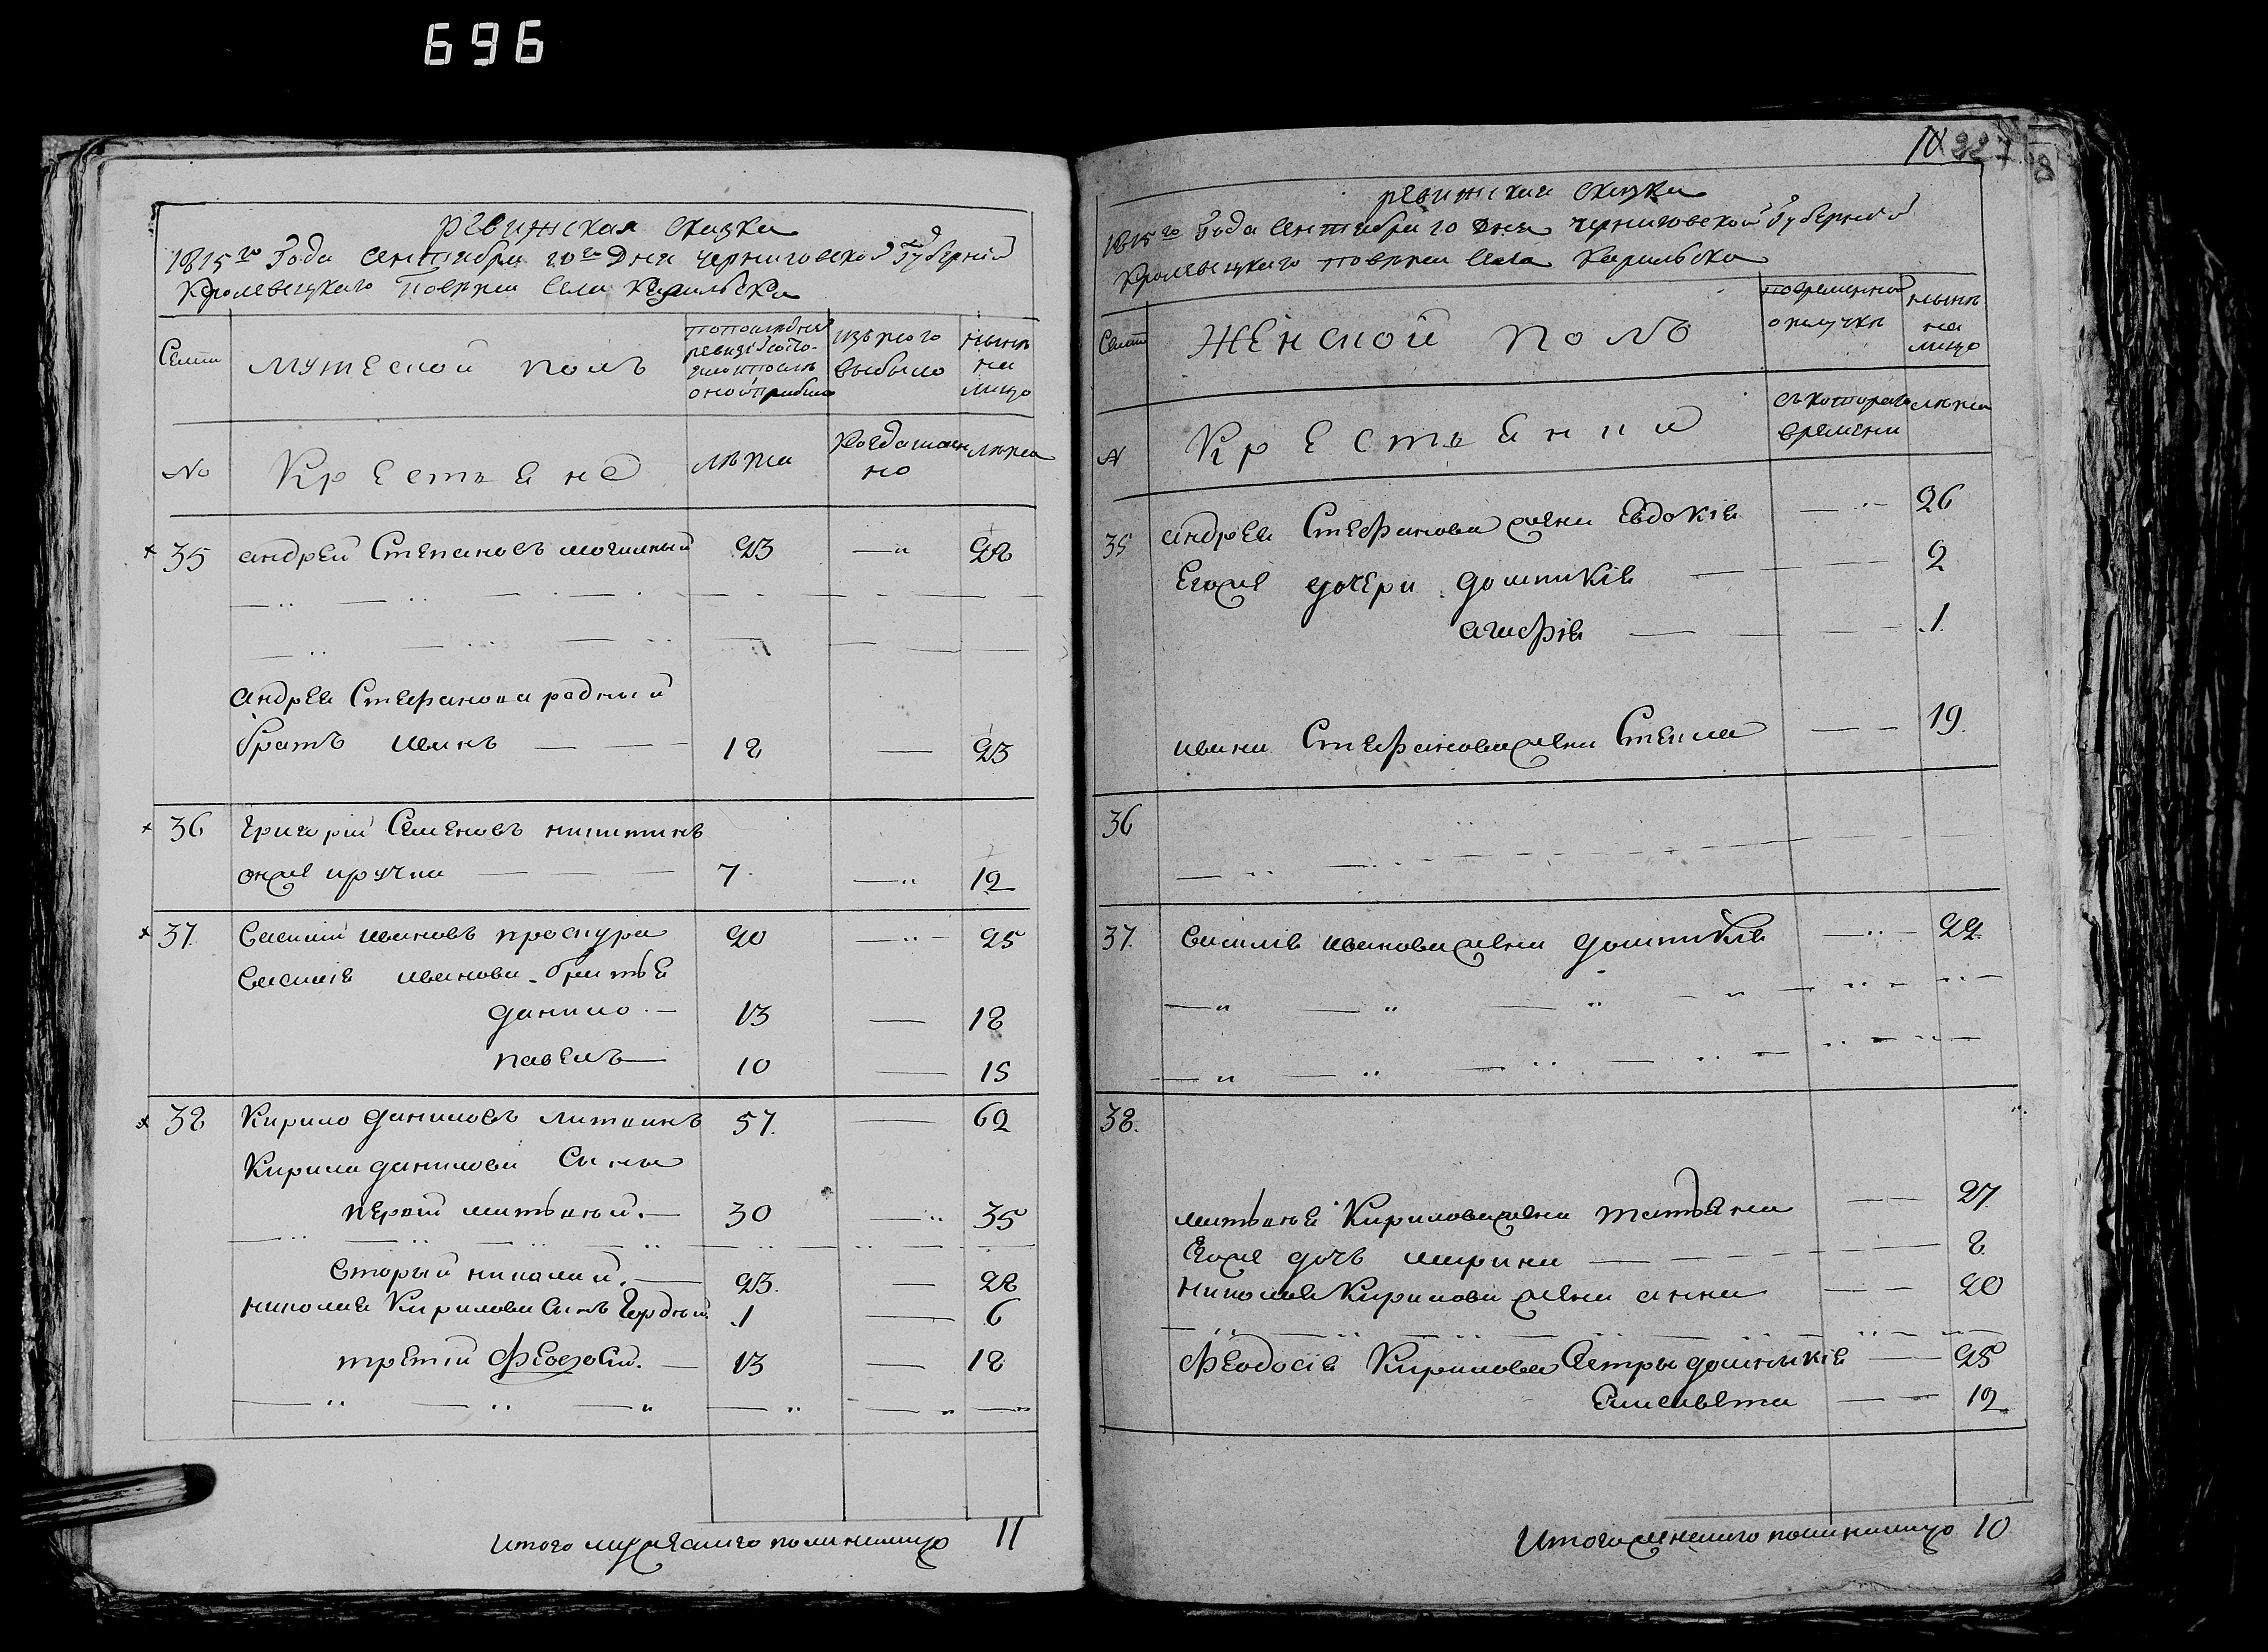 696
ревижская сказка
1815го Года сентября 20го дня черниговской Губерний
Кролевецкаго Повета села Карильска
Семи
мужеской полъ
изъ того
выбыло
ныне
на
лицо
No
Крестьяне
лета
Когда имян
но
лета
35 андрей Степановъ могилный 23 — 28
андрея Стефанова родный
братъ иванъ — — 18 — 23
36 Григорий Семеновъ
7 — 12
37. Василий ивановъ проскура 20 — 25
Василия иванова братья
данило — 13 — 18
павелъ — 10 — 15
38 Кирило даниловъ литвинъ 57 — 62
Кирила данилова Сыны
первый — 30 — 35
вторый николай — 23 — 28
николая Кирилова Сынъ 1 — 6
третий Феодосий — 13 — 18
итого мужескаго пола налицо 11
10 227
ревижская сказка
1815го Года сентября 20 дня черниговской Губерний
Кролевецкаго повета села Карильска
Семи
Женской полъ
повременной
отлучке
ныне
на
лицо
N
Крестьянки
съ котораго
времени
лета
35 андрея Стефанова жена Евдокия — 26
Егоже дочери домникия — 2
агафия — 1
ивана Стефанова жена Степ — 19
36
37. василия иванова жена домникия — 22
38.
Кирилова жена татьяна — 27
Егоже дочь марина — 8
николая Кирилова жена анна — 20
Феодосия Кирилова Сестры домникия — 25
Елисавета — 12
Итого женскаго пола налицо 10